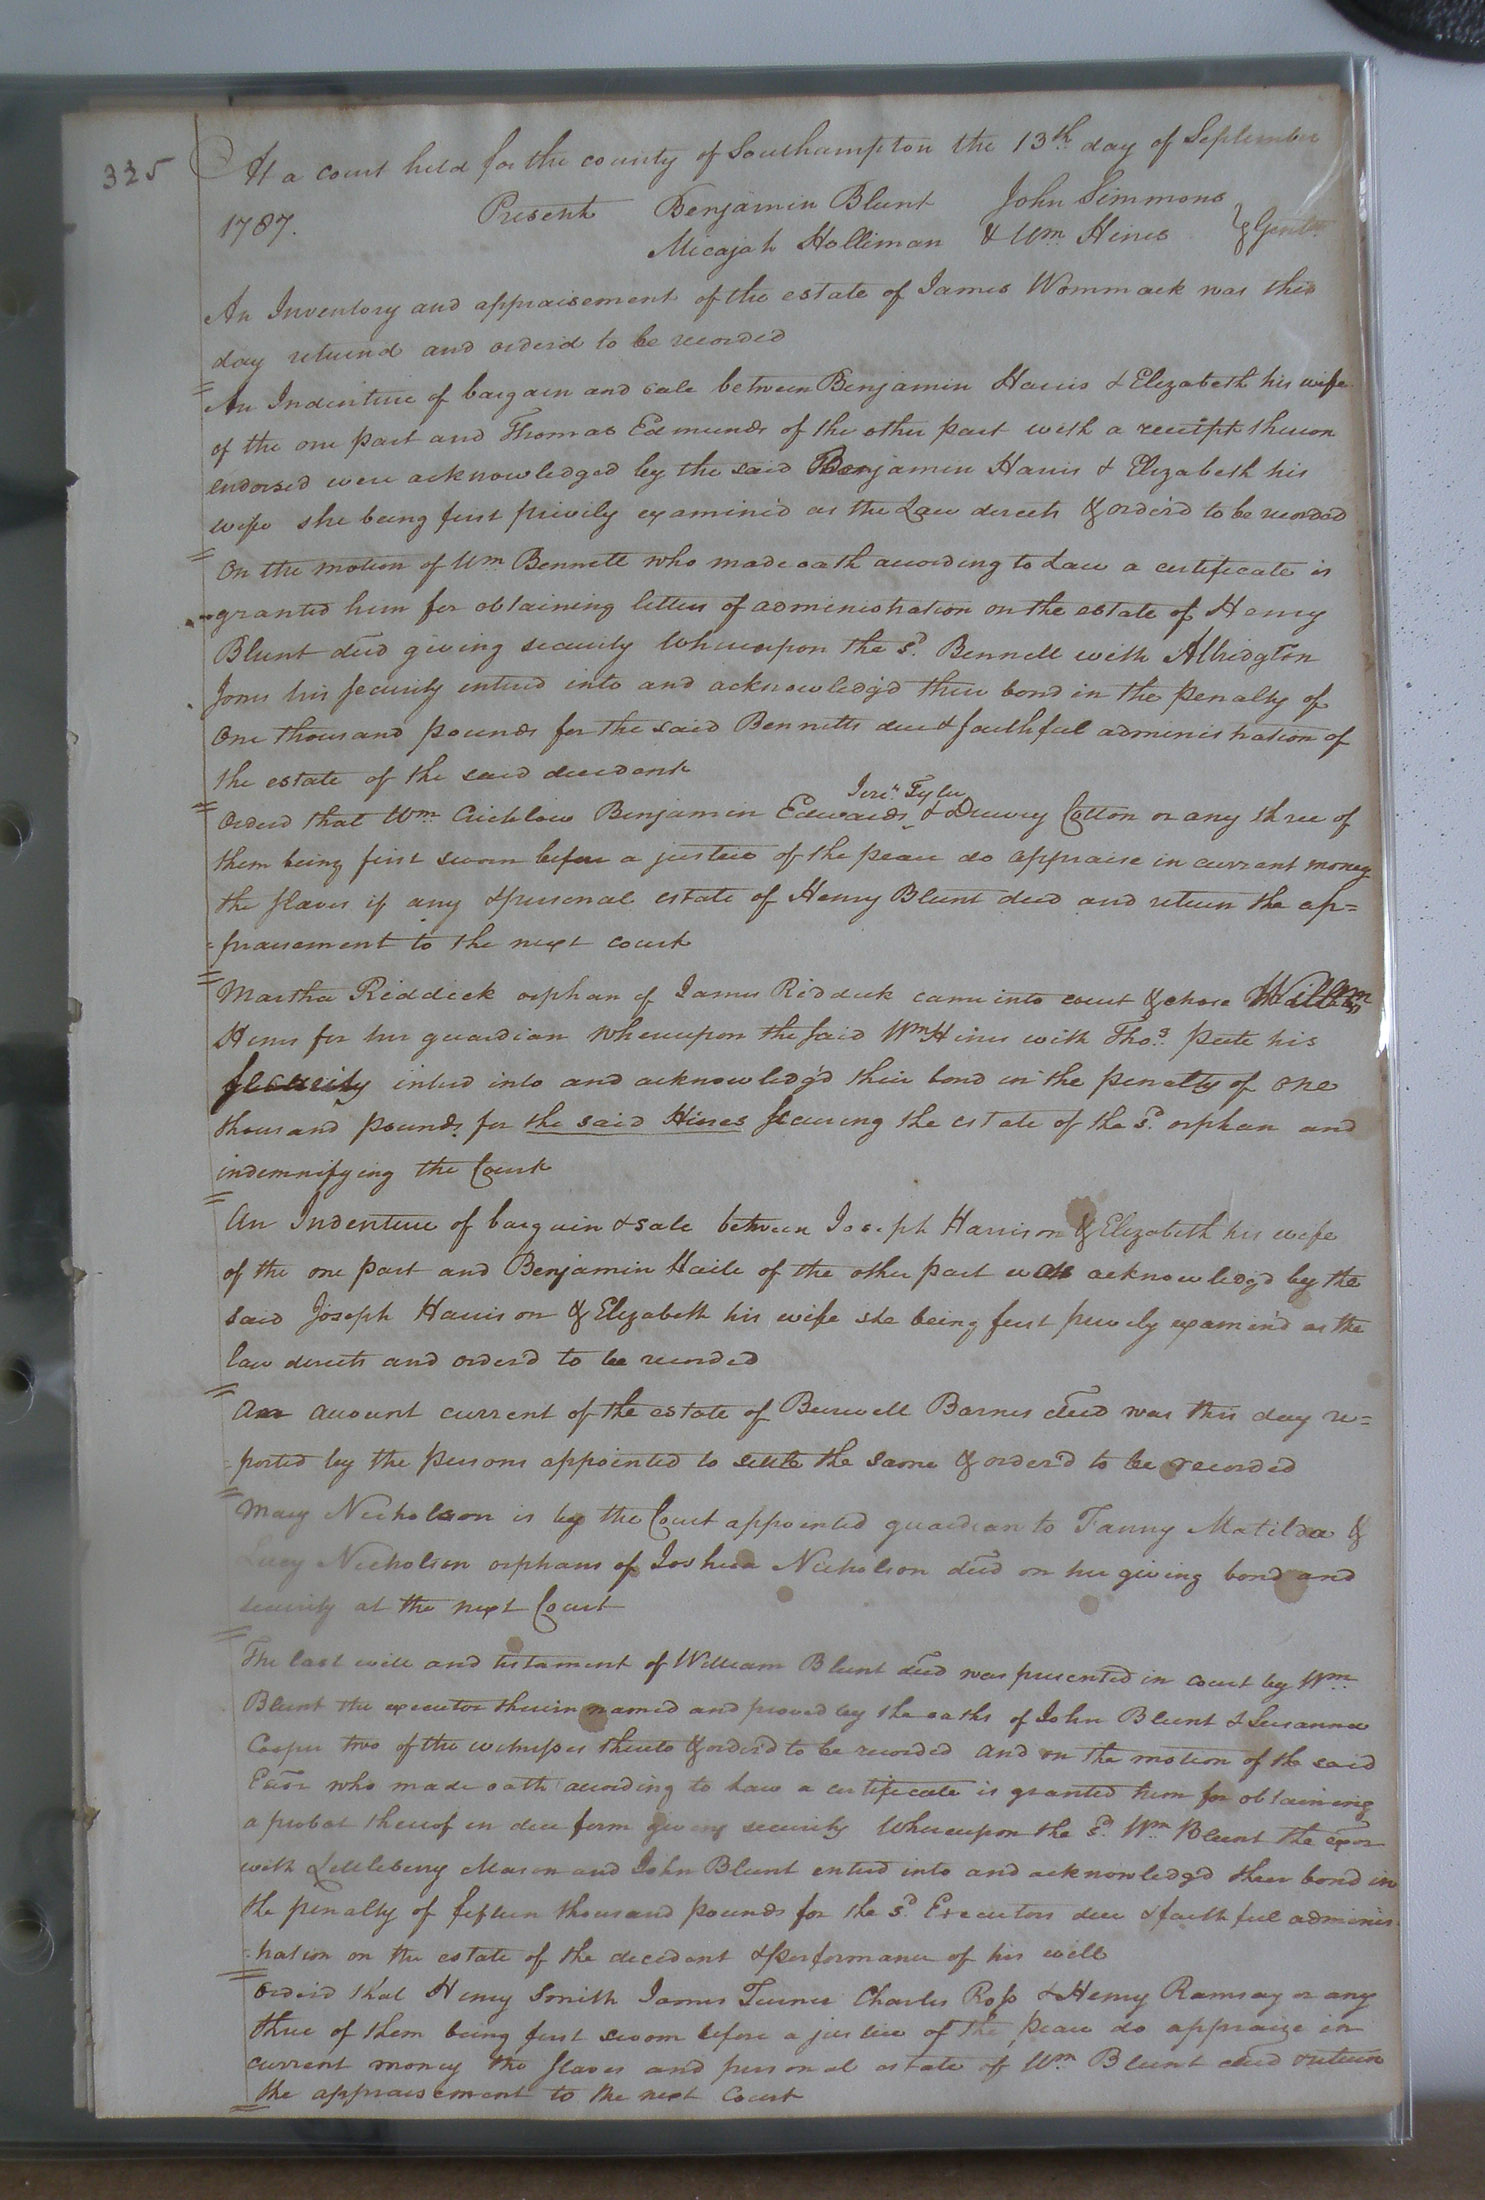 325
At a court held for the county of Southampton the 13th day of September
1787. Present Benjamin Blunt John Simmons
Micajah Holliman & Wm Hines } Gentn
An Inventory and appraisement of the estate of James Wommack was this
day returnd and orderd to be recorded
An Indenture of bargain and sale between Benjamin Harris & Elizabeth his wife
of the one part and Thomas Edmunds of the other part with a receipt thereon
endorsed were acknowledged by the said Benjamin Harris & Elizabeth his
wife she being first privily examined as the Law directs & order'd to be recorded
On the motion of Wm Bennett who made oath according to Law a certificate is
granted him for obtaining letters of administration on the estate of Henry
Blunt decd giving security Whereupon the sd. Bennett with Albridgton
Jones his security entred into and acknowledg'd their bond in the penalty of
One thousand pounds for the said Bennetts due & faithful administration of
the estate of the said decedent
Jere. Tyler
Orderd that Wm Crichlow Benjamin Edwards & Drewry Cotton or any three of
them being first sworn before a justice of the peace do appraise in current money
the slaves if any & personal estate of Henry Blunt decd and return the ap=
=praisement to the next court
Martha Riddick orphan of James Riddick came into court & chose Wm
Hines for her guardian Whereupon the said Wm Hines with Thos. Peete his
security entred into and acknowledg'd their bond in the penalty of one
thousand pounds for the said Hines securing the estate of the sd. orphan and
indemnifying the Court
An Indenture of bargain & sale between Joseph Harrison & Elizabeth his wife
of the one part and Benjamin Haile of the other part was acknowledg'd by the
said Joseph Harrison & Elizabeth his wife she being first privily examin'd as the
law directs and order'd to be recorded
An account current of the estate of Burwell Barnes decd was this day re=
=ported by the persons appointed to settle the same & order'd to be recorded
Mary Nicholson is by the Court appointed guardian to Fanny Matilda &
Lucy Nicholson orphans of Joshua Nicholson decd on her giving bond and
security at the next Court
The last will and testament of William Blunt decd was presented in court by Wm
Blunt the executor therein named and proved by the oaths of John Blunt & Susanna
Cooper two of the witnesses thereto & order'd to be recorded and on the motion of the said
Exor who made oath according to Law a certificate is granted him for obtaining
a probat thereof in due form giving security Whereupon the sd. Wm Blunt the exor
with Littleberry Mason and John Blunt entred into and acknowledg'd their bond in
the penalty of fifteen thousand pounds for the sd. Executors due & faithful adminis=
=tration on the estate of the decedent & performance of his will
Orderd that Henry Smith James Turner Charles Ross & Henry Ramsay or any
three of them being first sworn before a justice of the peace do appraize in
current money the slaves and personal estate of Wm Blunt decd return
the appraisement to the next Court